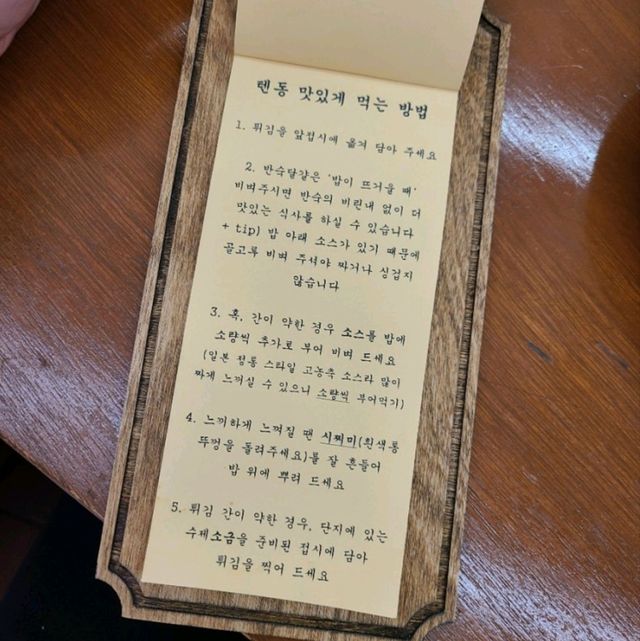 텐동 맛있게 먹는 방법
1. 튀김을 앞접시에 옮겨 담아 주세요
2. 반숙달걀은 '밥이 뜨거울 때'
비벼주시면 반숙의 비린내 없이 더
맛있는 식사를 하실 수 있습니다
+ tip) 밥 아래 소스가 있기 때문에
골고루 비벼 주셔야 짜거나 싱겁지
않습니다
3. 혹, 간이 약한 경우 소스를 밥에
소량씩 추가로 부어 비벼 드세요
(일본 정통 스타일 고농축 소스라 많이
짜게 느껴실 수 있으니 소량씩 부어먹기)
4. 느끼하게 느껴질 땐 시찌미(흰색통
뚜껑을 돌려주세요)를 잘 흔들어
밥 위에 뿌려 드세요
5. 튀김 간이 약한 경우, 단지에 있는
수제소금을 준비된 접시에 담아
튀김을 찍어 드세요